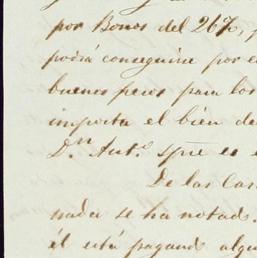 por Bonos del 26%,
podrá conseguirse por e
buenos pesos para los
importa el bien de
D.n Ant.o spre es e
De las Cas
nada se ha notado.
él está pagando algu